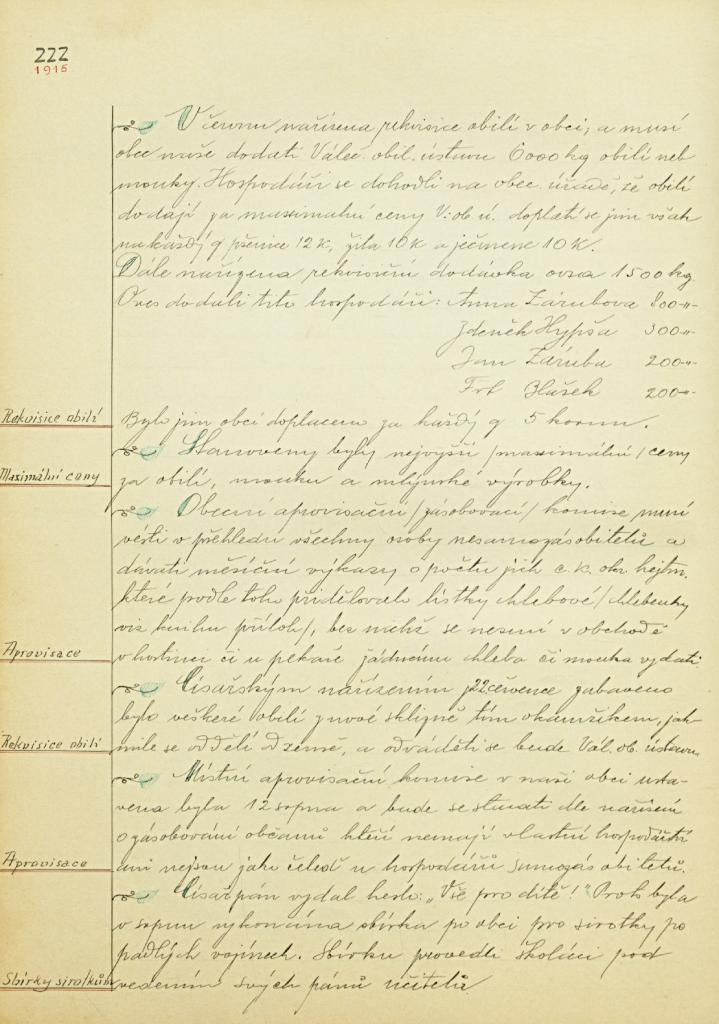 222
1915
V červnu nařízena rekvisice obilí v obci, a musí
obec naše dodati Váleč. obil. ústavu 6000 kg obilí neb
mouky. Hospodáři se dohodli na obec. úřadě, že obilí
dodají za maximalní ceny V. ob. ú. doplatí se jim však
na každý q pšenice 12 K, žita 10 K a ječmene 10 K.
Dále nařízena rekvisiční dodávka ovsa 1500 kg.
Oves dodali tito hospodáři: Anna Zárubova 800-"-
Zdeněk Hypša 300-"-
Jan Záruba 200-"-
Frt Hášek 200-"-
Rekvisice obilí
Bylo jim obcí doplaceno za každý q 5 korun.
Stanoveny byly nejvyšší /maximalní/ ceny
Maximální ceny
za obilí, mouku a mlýnské výrobky.
Obecní aprovisační /zásobovací/ komise musí
vésti v přehledu všechny osoby nesamozásobitelů a
dávati měsíční výkazy o počtu jich c. k. okr. hejtm.
které podle toho přidělovalo lístky chlebové /chlebenky
viz knihu příloh/, bez nichž se nesmí v obchodě
Aprovisace
v hostinci či u pekaře žádnému chleba či mouka vydati.
Císařským nařízením z 22 července zabaveno
bylo veškeré obilí z nové sklizně tím okamžikem, jak-
Rekvisice obilí
mile se oddělí od země, a odváděti se bude Vál. ob. ústavu
Místní aprovisační komise v naší obci usta-
vena byla 12 srpna a bude se starati dle nařízení
o zásobování občanů kteří nemají vlastní hospodářství
Aprovisace
ani nejsou jako čeleď u hospodářů samozásobitelů.
Císař pán vydal heslo: „Vše pro dítě!" Proto byla
v srpnu vykonána sbírka po obci pro sirotky po
padlých vojínech. Sbírku provedli školáci pod
Sbírky sirotkům
vedením svých pánů učitelů